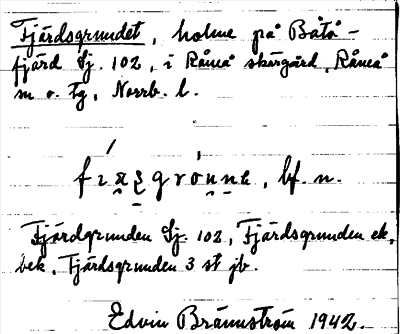 Fjärdsgrundet, holme på Båtå-
fjärd Sj. 102, i Råneå skärgård, Råneå
sn o. tg, Norrb. l.
bf. n.
Fjärdgrunden Sj. 102, Fjärdsgrunden ek,
bek, Fjärdsgrunden 3 st jb.
Edvin Brännström 1942.